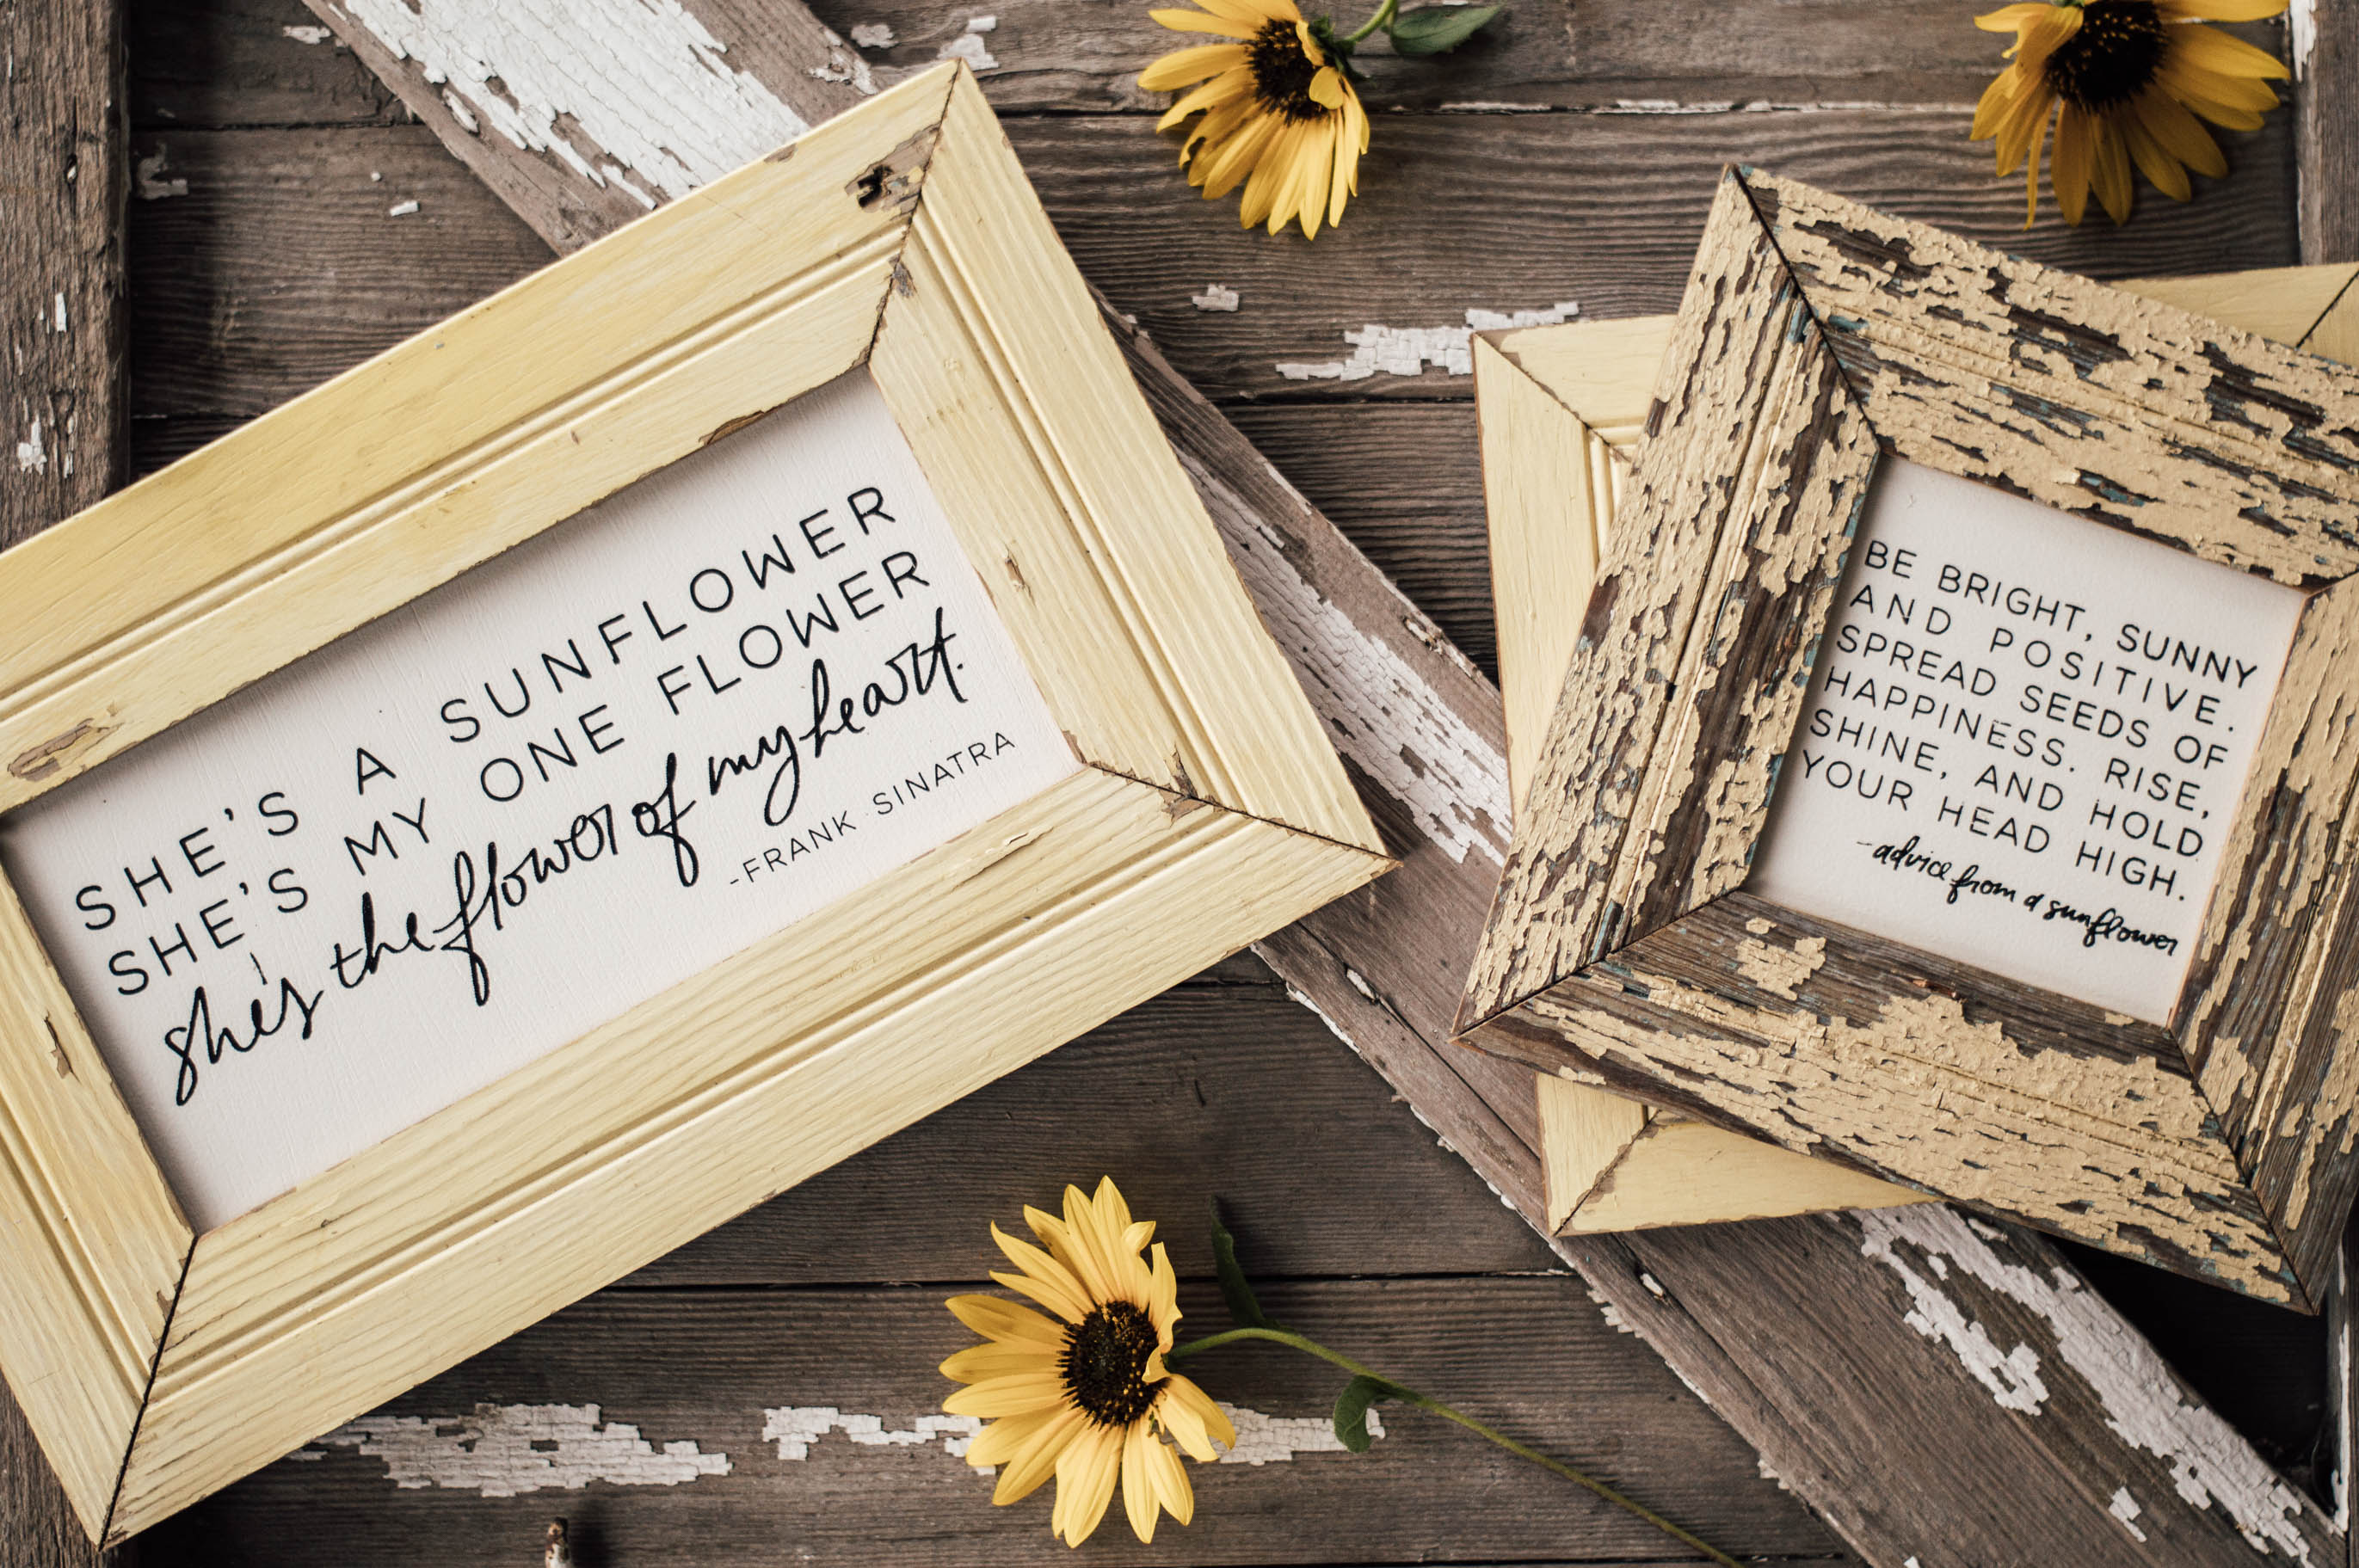 SHE'S A SUNFLOWER
SHE'S MY ONE FLOWER
she's the flower of my heart.
-FRANK SINATRA
BE BRIGHT, SUNNY
AND POSITIVE.
SPREAD SEEDS OF
HAPPINESS. RISE,
SHINE, AND HOLD
YOUR HEAD HIGH.
-advice from a sunflower